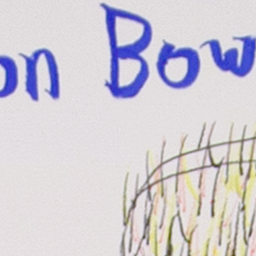 on Bow